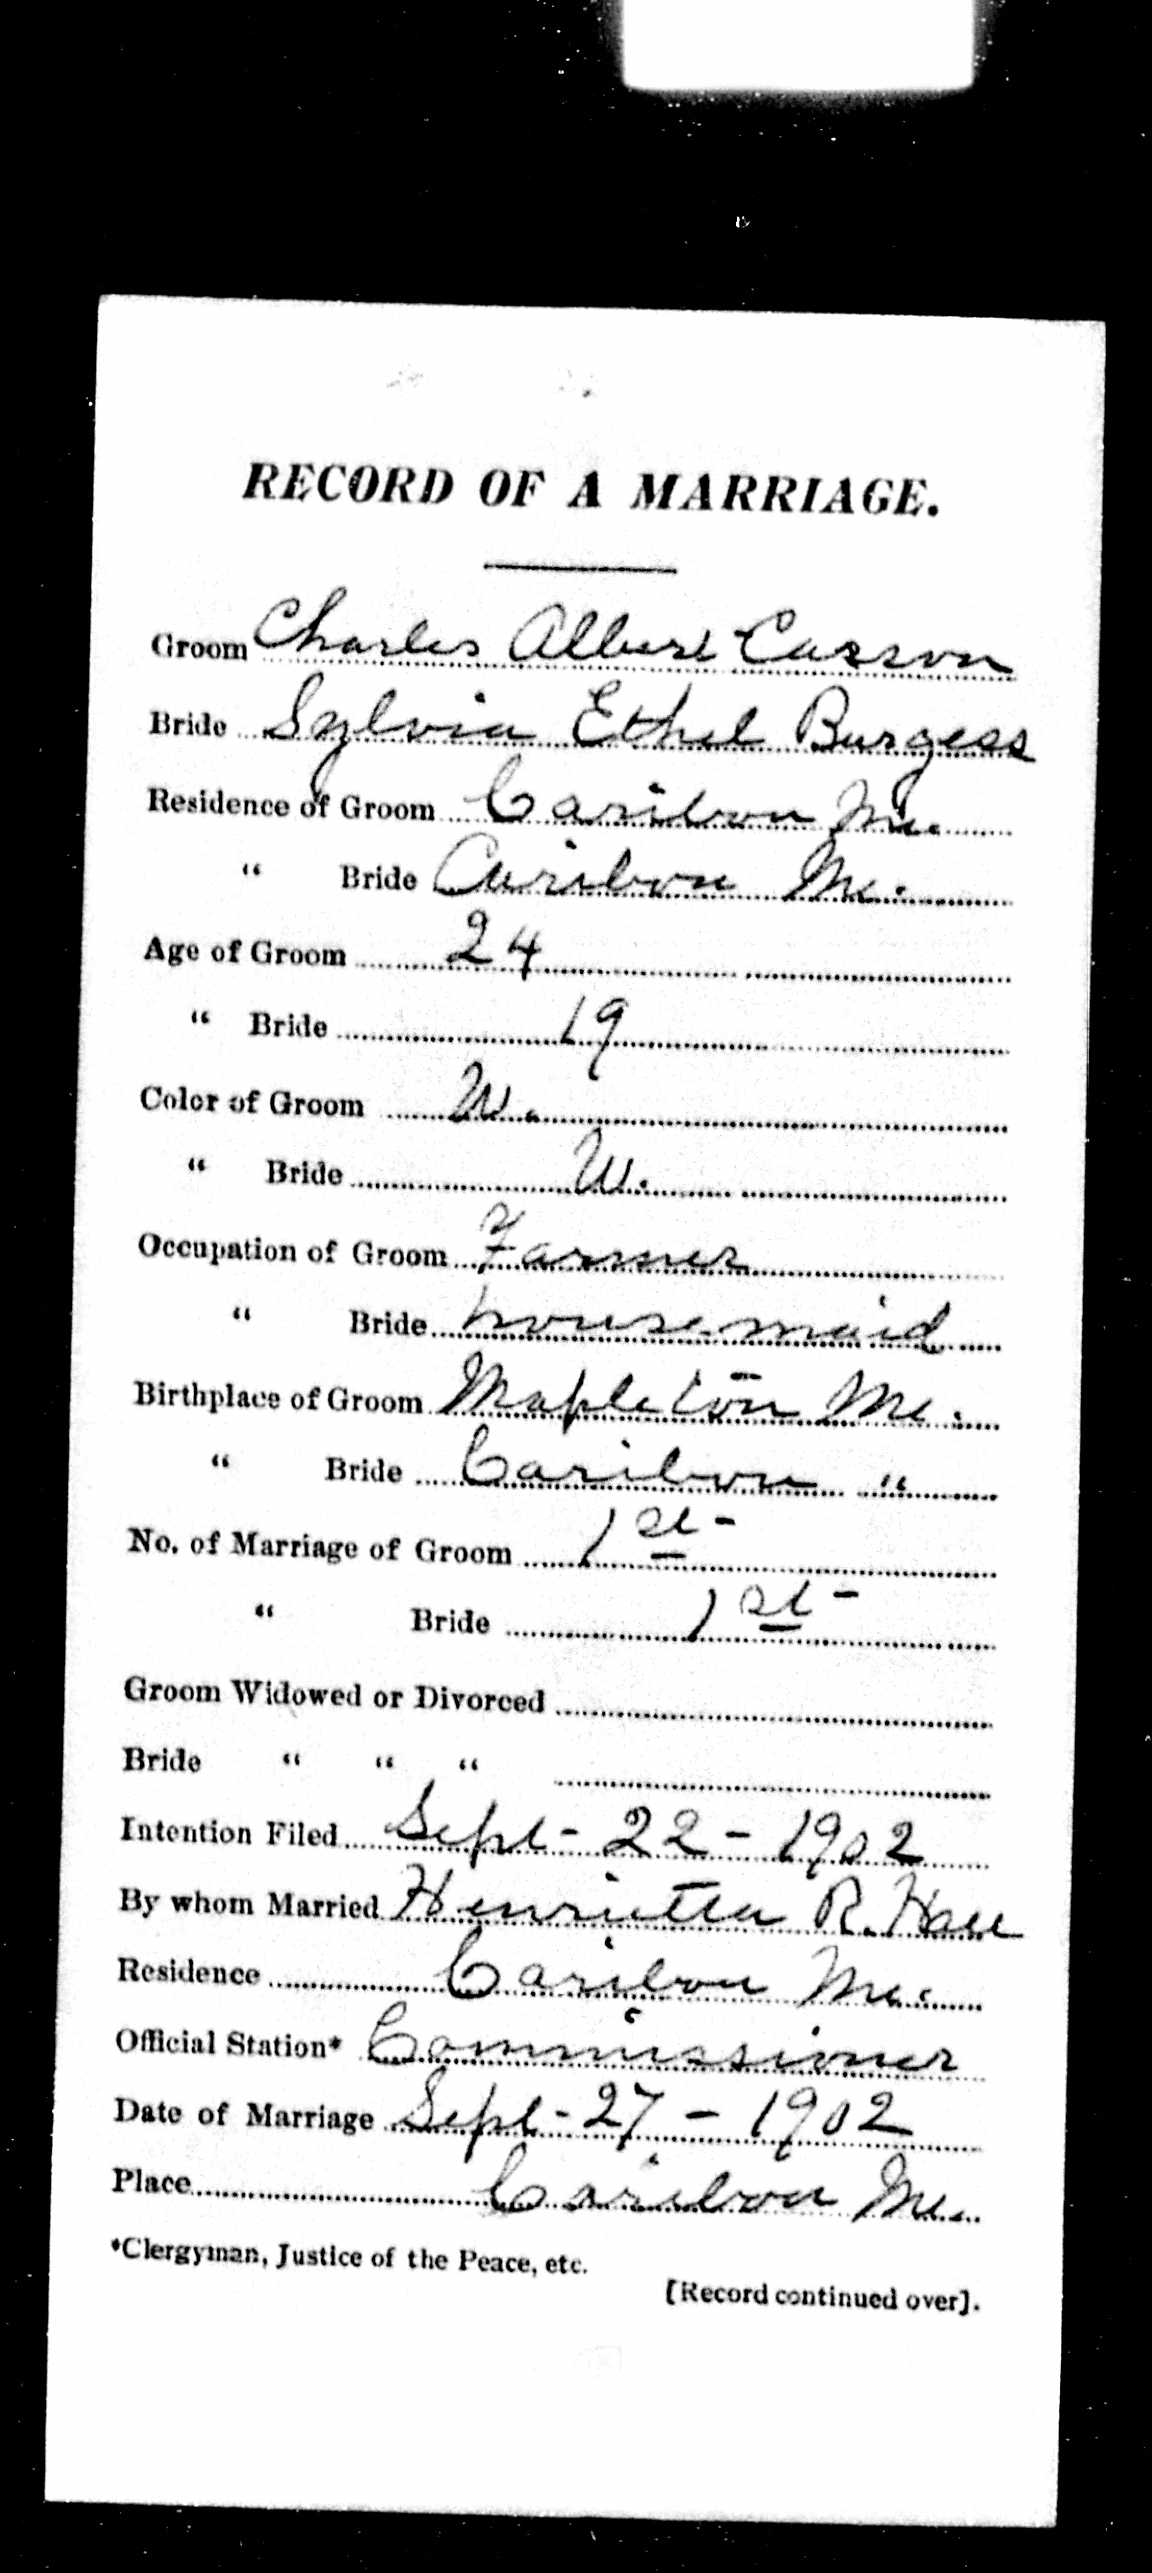 RECORD OF A MARRIAGE.
Groom Charles Albert Casson
Bride Sylvia Ethel Burgess
Residence of Groom Caribou Me.
" Bride Caribou Me.
Age of Groom 24
" Bride 19
Color of Groom W.
" Bride W.
Occupation of Groom Farmer
" Bride housemaid
Birthplace of Groom Mapleton Me.
" Bride Caribou "
No. of Marriage of Groom 1st
" Bride 1st
Groom Widowed or Divorced
Bride " " "
Intention Filed Sept-22-1902
By whom Married Henrietta R. Hall
Residence Caribou Me.
Official Station* Commissioner
Date of Marriage Sept-27-1902
Place Caribou Me.
*Clergyman, Justice of the Peace, etc.
[Record continued over].